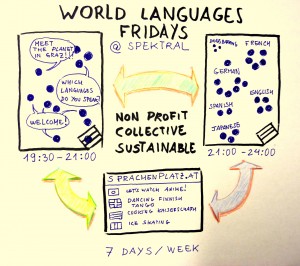 WORLD LANGUAGES
FRIDAYS
@ SPEKTRAL
MEET
THE PLANET
IN GRAZ!!
WHICH
LANGUAGES
DO YOU SPEAK?
WELCOME!
19:30 - 21:00
NON PROFIT
COLLECTIVE
SUSTAINABLE
FRENCH
GERMAN
ENGLISH
SPANISH
JAPANESE
21:00 - 24:00
SPRACHENPLATZ.AT
LET'S WATCH ANIME!
DANCING FINNISH
TANGO
COOKING KAISERSCHARN
ICE SKATING
7 DAYS / WEEK